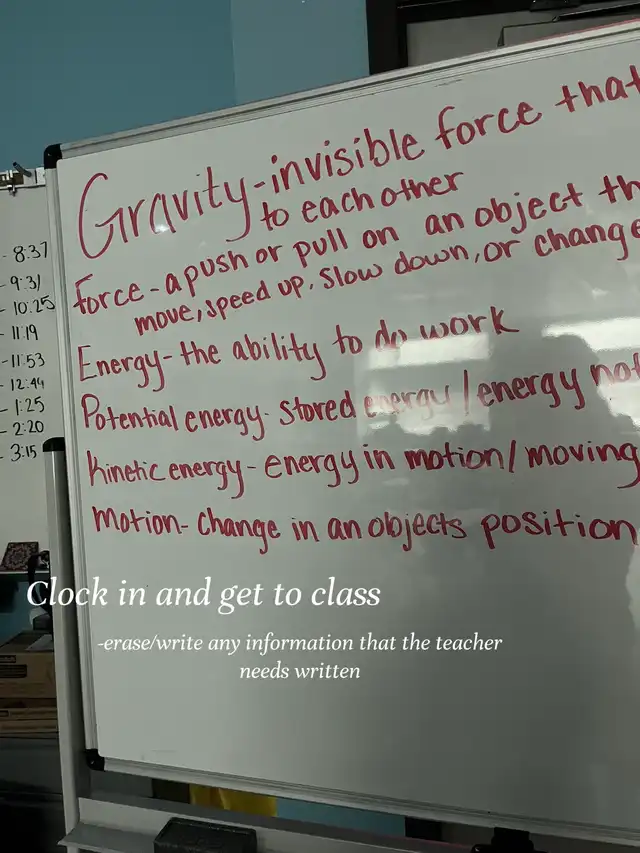 Gravity-invisible force that
to each other
Force-a push or pull on an object th
move, speed up, slow down, or change
Energy-the ability to do work
Potential energy- stored energy/energy not
kinetic energy-energy in motion/moving
Motion- change in an objects position
- 8:37
- 9:31
- 10:25
- 11:19
- 11:53
- 12:44
- 1:25
- 2:20
- 3:15
Clock in and get to class
-erase/write any information that the teacher
needs written